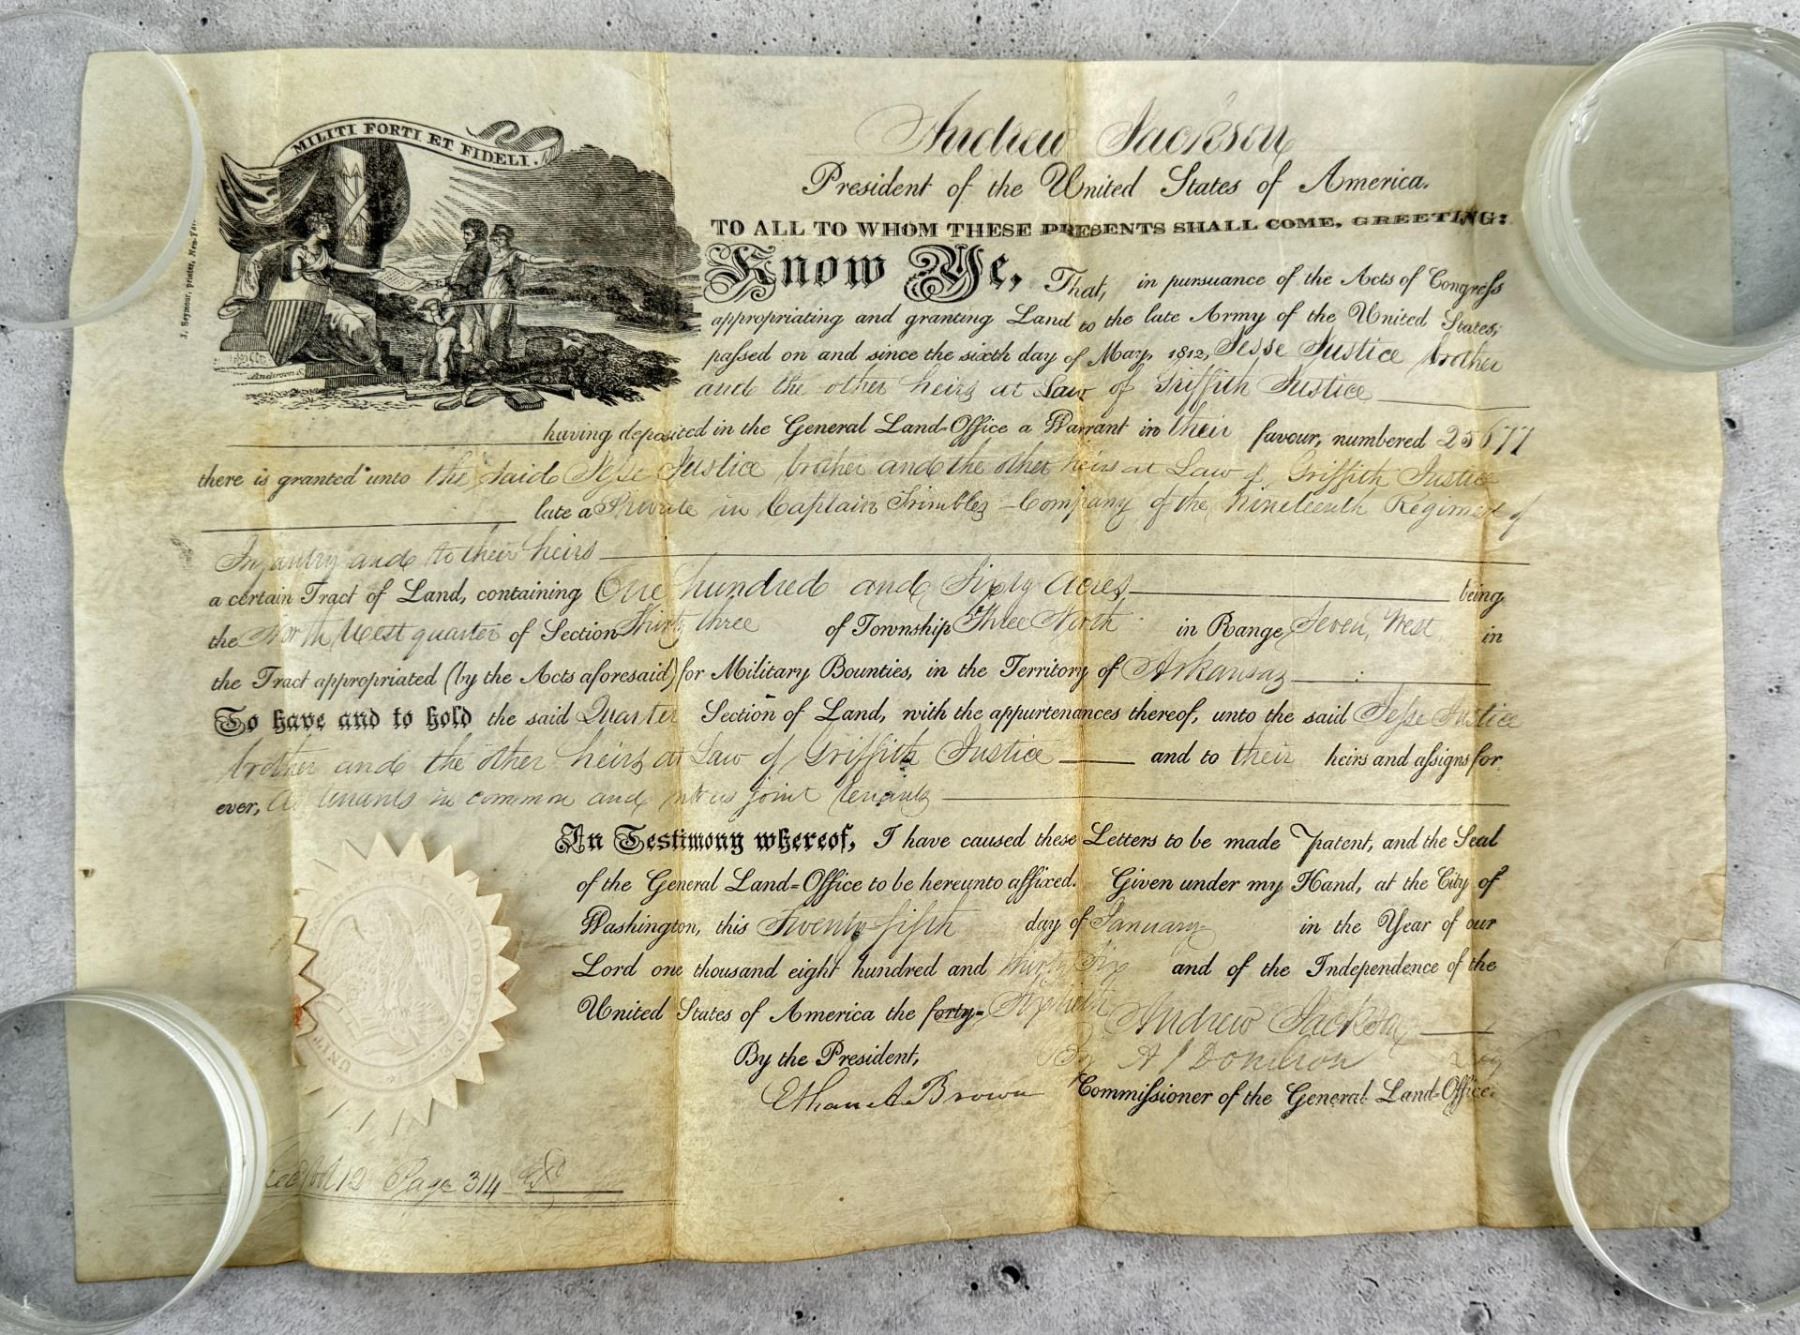 MILITI FORTI ET FIDELI.
Andrew Jackson
President of the United States of America.
TO ALL TO WHOM THESE PRESENTS SHALL COME, GREETING:
Know Ye, That, in pursuance of the Acts of Congress
appropriating and granting Land to the late Army of the United States,
passed on and since the sixth day of May, 1812, Jesse Justice brother
and the other heirs at Law of Griffith Justice
having deposited in the General Land-Office a Warrant in their favour, numbered 25677
there is granted unto the said Jesse Justice brother and the other heirs at Law of Griffith Justice
late a Private in Captain Trimbles Company of the Nineteenth Regiment of
Infantry and to their heirs
a certain Tract of Land, containing One hundred and Sixty Acres, being
the North West quarter of Section Thirty three of Township Three North in Range Seven, West in
the Tract appropriated (by the Acts aforesaid) for Military Bounties, in the Territory of Arkansas
To have and to hold the said Quarter Section of Land, with the appurtenances thereof, unto the said Jesse Justice
brother and the other heirs at Law of Griffith Justice and to their heirs and assigns for
ever, As tenants in common and not as joint tenants
In Testimony whereof, I have caused these Letters to be made Patent, and the Seal
of the General Land-Office to be hereunto affixed. Given under my Hand, at the City of
Washington, this Twenty fifth day of January in the Year of our
Lord one thousand eight hundred and thirty Six and of the Independence of the
United States of America the forty- Sixtieth
Andrew Jackson
By the President, By A J Donelson Secy
Ethan A. Brown Commissioner of the General Land-Office.
Vol 12 Page 314
J. Seymour, printer, New-York
Anderson S.